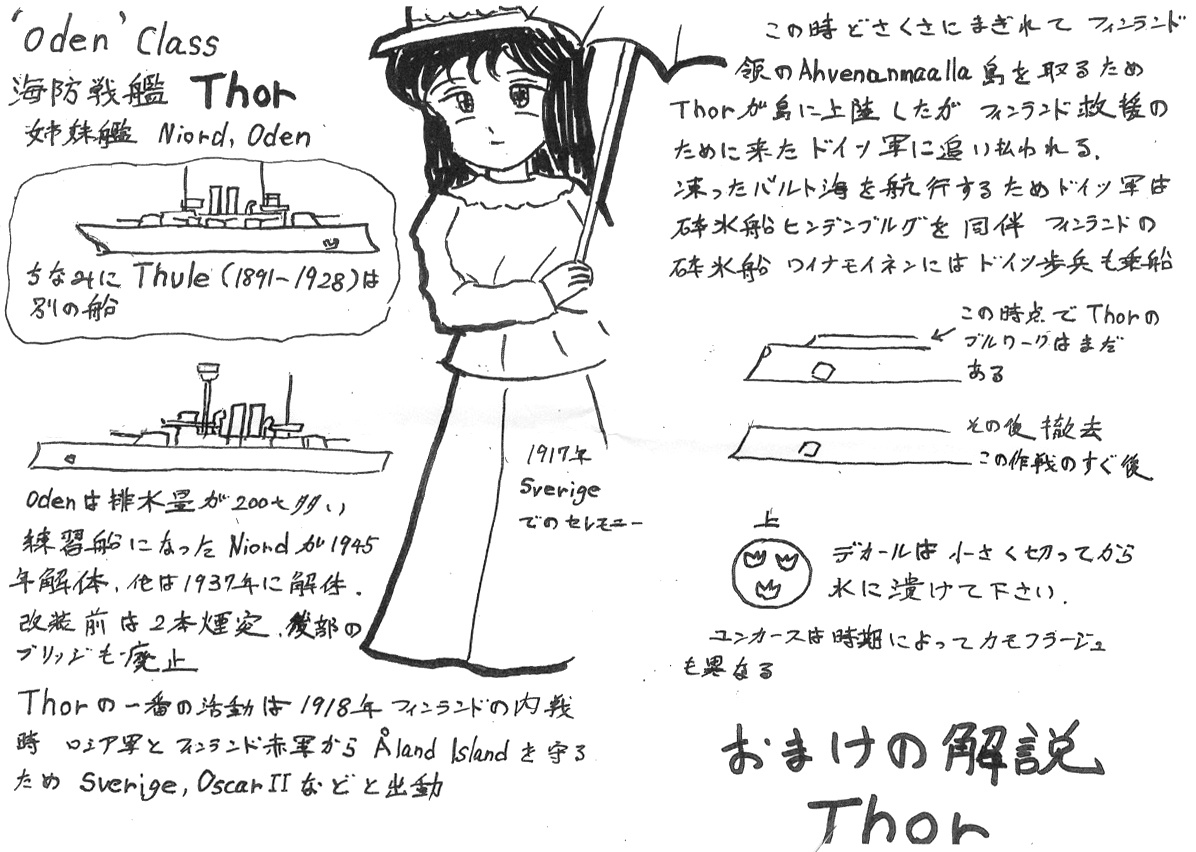 'Oden' Class
海防戦艦 Thor
姉妹艦 Niord, Oden
ちなみに Thule (1891-1928)は
別の船
Odenは排水量が200t多い
練習船になったNiordが1945
年解体、他は1937年に解体.
改装前は2本煙突、後部の
ブリッジも廃止
Thorの一番の活動は1918年フィンランドの内戦
時 ロシア軍とフィンランド赤軍から Åland Islandを守る
ため Sverige, Oscar IIなどと出動
1917年
Sverige
でのセレモニー
この時どさくさにまぎれて フィンランド
領のAhvenanmaalla島を取るため
Thorが島に上陸したが フィンランド救援の
ために来たドイツ軍に追い払われる.
凍ったバルト海を航行するためドイツ軍は
砕氷船ヒンデンブルグを同伴 フィンランドの
砕氷船 ワイナモイネンにはドイツ歩兵も乗船
この時点でThorの
ブルワークはまだ
ある
その後撤去
この作戦のすぐ後
上
デカールは小さく切ってから
水に漬けて下さい.
ユンカースは時期によってカモフラージュ
も異なる
おまけの解説
Thor